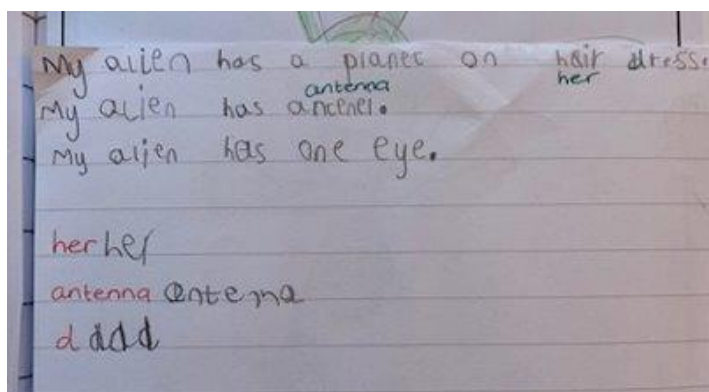 My alien has a planet on hair dress.
antenna her
My alien has ancenel.
My alien has one eye.
her her
antenna antenna
d ddd